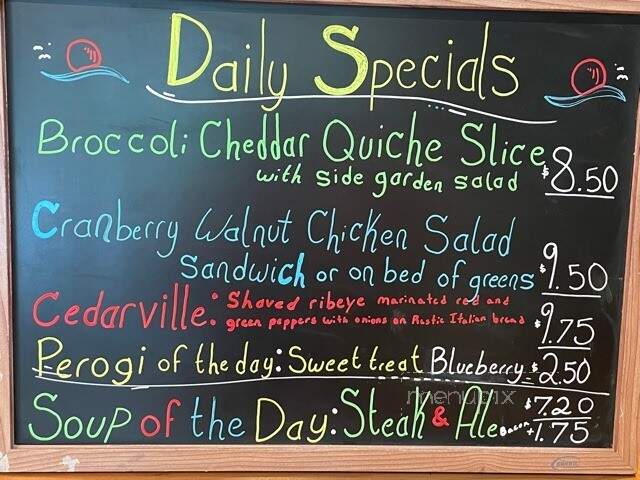 Daily Specials
Broccoli Cheddar Quiche Slice
with side garden salad $8.50
Cranberry Walnut Chicken Salad
Sandwich or on bed of greens $9.50
Cedarville: Shaved ribeye marinated red and
green peppers with onions on Rustic Italian bread $9.75
Perogi of the day: Sweet treat Blueberry $2.50
Soup of the Day: Steak & Ale $7.20
Bacon +1.75
menupix